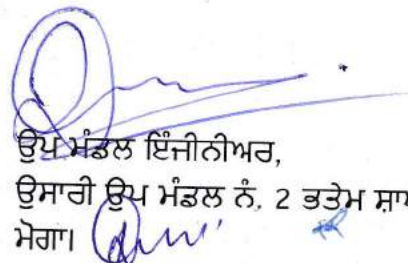 ਉਪ ਮੰਡਲ ਇੰਜੀਨੀਅਰ,
ਉਸਾਰੀ ਉਪ ਮੰਡਲ ਨੰ. 2 ਭਤੇਮ
ਮੋਗਾ।